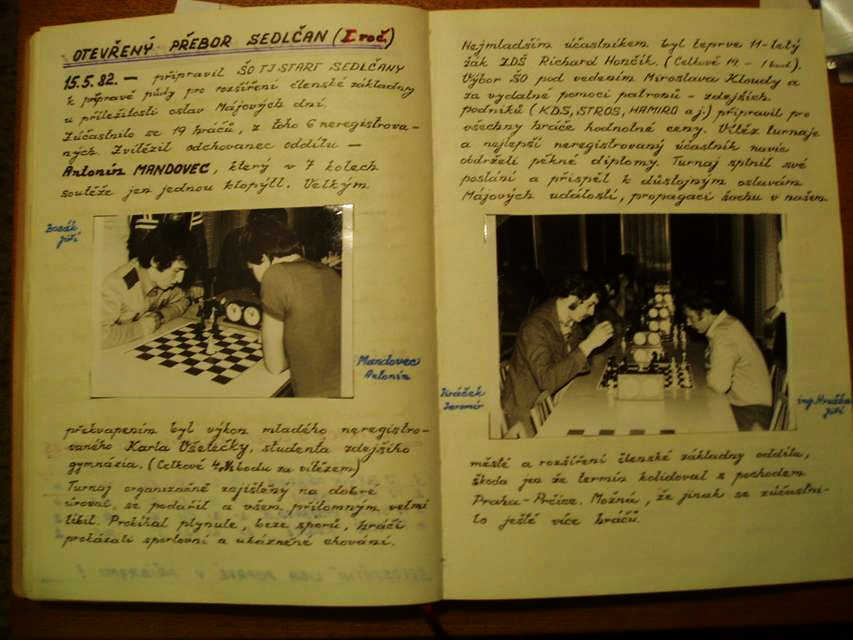 OTEVŘENÝ PŘEBOR SEDLČAN (I. roč.)
15.5.82. — připravil ŠO TJ START SEDLČANY
k přípravě půdy pro rozšíření členské základny
u příležitosti oslav Májových dní.
Zúčastnilo se 19 hráčů, z toho 6 neregistrova-
ných. Zvítězil odchovanec oddílu —
Antonín MANDOVEC, který v 7 kolech
soutěže jen jednou klopýtl. Velkým
Bosák
Jiří
Mandovec
Antonín
překvapením byl výkon mladého neregistro-
vaného Karla Všetečky, studenta zdejšího
gymnázia. (Celkově 4, bodu za vítězem)
Turnaj organizačně zajištěný na dobré
úrovni, se podařil a všem přítomným velmi
líbil. Probíhal plynule, beze sporů, hráči
prokázali sportovní a ukázněné chování.
Nejmladším účastníkem byl teprve 11-letý
žák ZDŠ Richard Hončík. (Celkově 19. - 1 bod).
Výbor ŠO pod vedením Miroslava Kloudy a
za vydatné pomoci patronů - zdejších
podniků (KDS, STROS, HAMIRO aj.) připravil pro
všechny hráče hodnotné ceny. Vítěz turnaje
a nejlepší neregistrovaný účastník navíc
obdrželi pěkné diplomy. Turnaj splnil své
poslání a přispěl k důstojným oslavám
Májových událostí, propagaci šachu v našem
Jaromír
ing. Hruška
Jiří
městě a rozšíření členské základny oddílu,
škoda jen že termín kolidoval s pochodem
Praha-Prčice. Možná, že jinak se zúčastni-
lo ještě více hráčů.